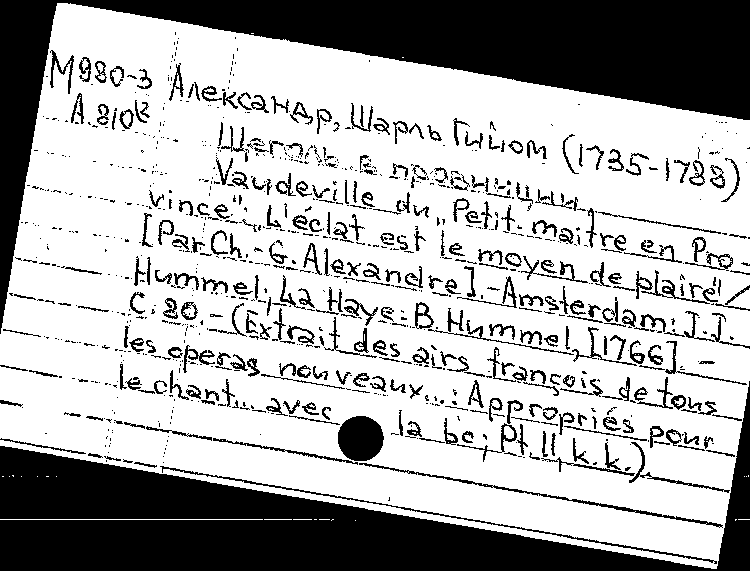 М980-3 Александр, Шарль Гийом (1735-1788)
А.810
Щеголь в провинции
Vaudeville du „Petit-maitre en Pro-
vince": „L'éclat est le moyen de plaire"/
[Par Ch.-G. Alexandre].-Amsterdam: J.J.
Hummel; La Haye: B. Hummel, [1766]. -
C. 80. - (Extrait des airs françois de tous
les operas nouveaux...: Appropriés pour
le chant... avec la bc; Pt. II, k.k.).